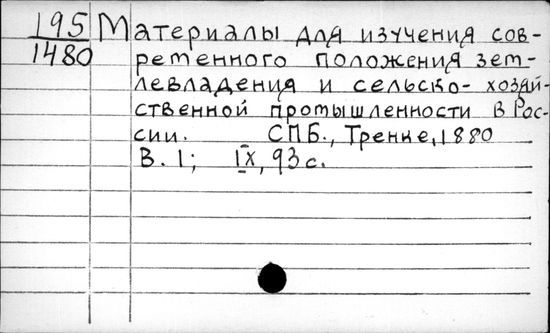 195 Материалы для изучения сов-
1480 ременного положения зем-
левладения и сельско-хозяй-
ственной промышленности в Рос-
сии. СПБ., Тренке, 1880
В. 1; IX, 93 с.